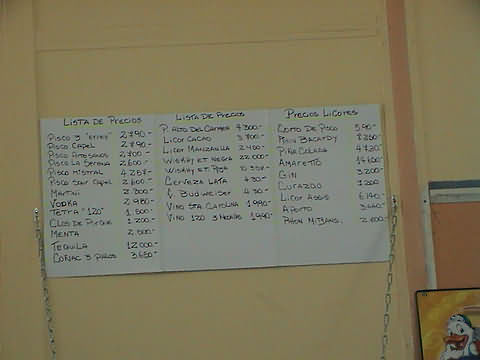 LISTA DE PRECIOS
PISCO 3 "erres" 2790.-
PISCO CAPEL 2790.-
PISCO ARTESANOS 2700.-
PISCO LA SERENA 2600.-
PISCO MISTRAL
PISCO SOUR CAPEL 2600.-
MARTINI
VODKA 2980.-
TETRA "120" 1.500.-
CLOS DE PIRQUE 1.200.-
MENTA 2.500.-
TEQUILA 12000.-
COÑAC 3 PALOS 3.650.-
LISTA DE PRECIOS
P. ALTO DEL CARMEN 4300.-
LICOR CACAO 3.700.-
LICOR MANZANILLA 2450.-
WISKHY ET. NEGRA 22.000.-
WISKHY ET. ROJA
CERVEZA LATA 430.-
" BUDWEISER 430.-
VINO STA. CAROLINA 1.990.-
VINO 120 3 MEDALLAS 1.990.-
PRECIOS LICORES
CORTO DE PISCO 590.-
RON BACARDY
PIÑA COLADA
AMARETTO 14600.-
GIN 3.200
CURAZAO
LICOR ANIS
APORTO
RHON MITJANS.